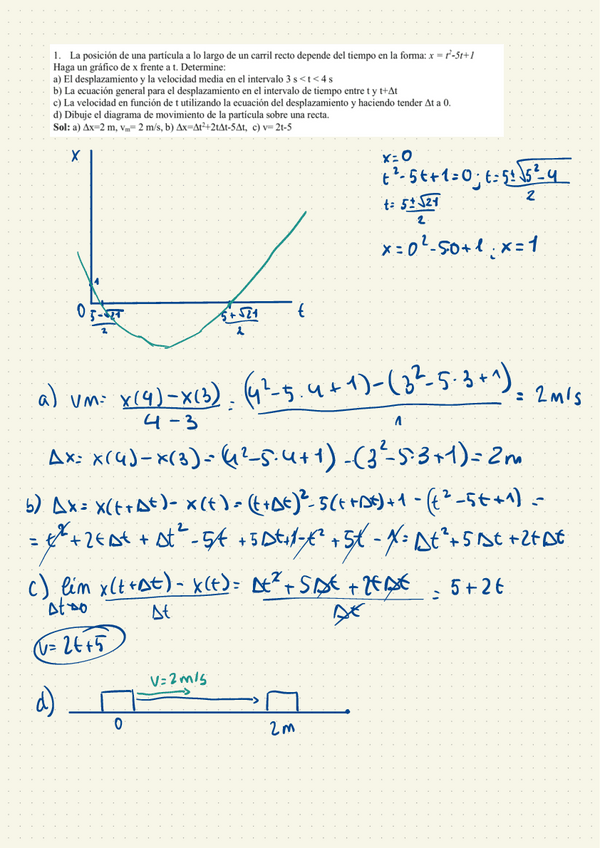 1. La posición de una partícula a lo largo de un carril recto depende del tiempo en la forma: x = t²-5t+1
Haga un gráfico de x frente a t. Determine:
a) El desplazamiento y la velocidad media en el intervalo 3 s < t < 4 s
b) La ecuación general para el desplazamiento en el intervalo de tiempo entre t y t+Δt
c) La velocidad en función de t utilizando la ecuación del desplazamiento y haciendo tender Δt a 0.
d) Dibuje el diagrama de movimiento de la partícula sobre una recta.
Sol: a) Δx=2 m, vₘ= 2 m/s, b) Δx=Δt²+2tΔt-5Δt, c) v= 2t-5
x
1
0
(5-√21)/2
(5+√21)/2
t
x=0
t²-5t+1=0; t=(5±√(5²-4))/2
t=(5±√21)/2
x=0²-5·0+1; x=1
a) vm= (x(4)-x(3))/(4-3) = ((4²-5·4+1)-(3²-5·3+1))/1 = 2m/s
Δx= x(4)-x(3)=(4²-5·4+1)-(3²-5·3+1)=2m
b) Δx= x(t+Δt)-x(t)=(t+Δt)²-5(t+Δt)+1-(t²-5t+1)=
= t²+2tΔt+Δt²-5t+5Δt+1-t²+5t-1=Δt²+5Δt+2tΔt
c) lím Δt→0 (x(t+Δt)-x(t))/Δt = (Δt²+5Δt+2tΔt)/Δt = 5+2t
v=2t+5
d)
v=2m/s
0
2m